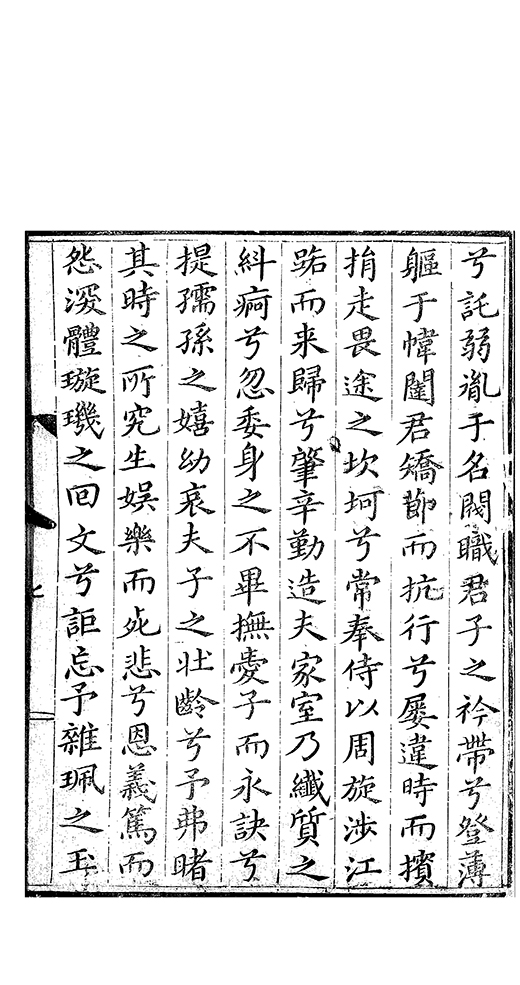 兮託弱胤于名閥職君子之衿帶兮登薄
軀于幃闥君矯節而抗行兮屡違時而擯
捐走畏途之坎坷兮常奉侍以周旋涉江
踰而来歸兮肇辛勤造夫家室乃纖質之
紏痾兮忽委身之不畢撫愛子而永訣兮
提孺孫之嬉幼哀夫子之壮齡兮予弗睹
其時之所究生娛樂而死悲兮恩義篤而
怨深體璇璣之回文兮詎忘予雜珮之玉
七